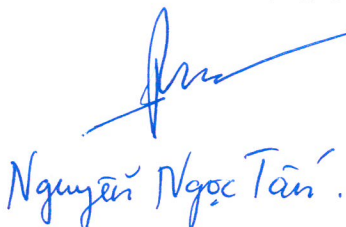 Nguyễn Ngọc Tân.